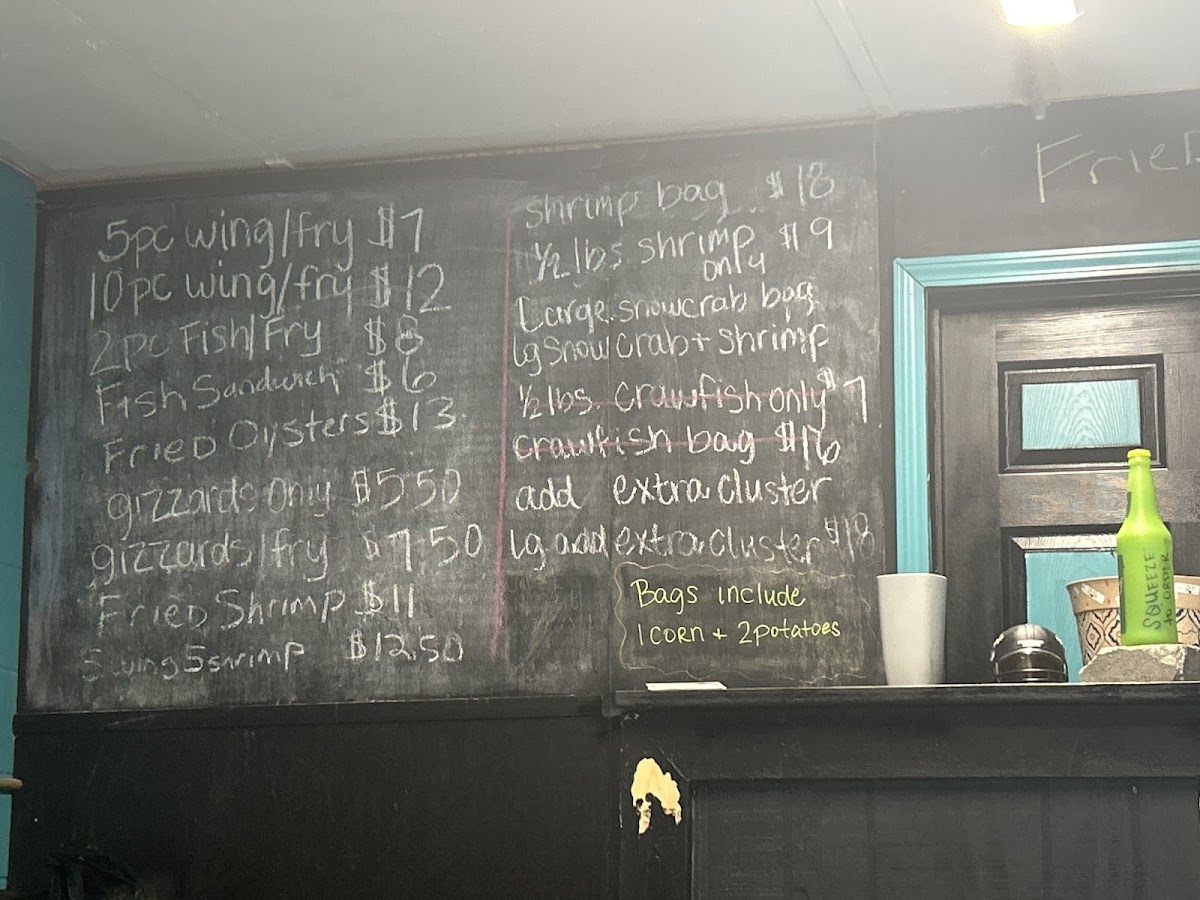 5pc wing/fry $7
10pc wing/fry $12
2pc Fish/Fry $8
Fish Sandwich $6
Fried Oysters $13
gizzards only $5.50
gizzards/fry $7.50
Fried Shrimp $11
5wing5shrimp $12.50
shrimp bag $18
1/2 lbs. shrimp $9
only
Large snowcrab bag
lg snow crab + shrimp
1/2 lbs. crawfish only $7
crawfish bag $16
add extra cluster
lg add extra cluster $18
Bags include
1 corn + 2 potatoes
Frien
SQUEEZE
to ORDER